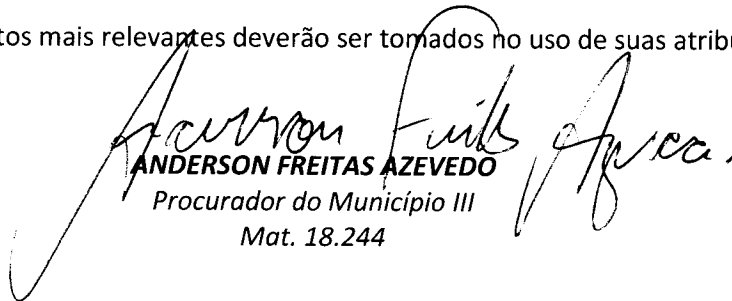 tos mais relevantes deverão ser tomados no uso de suas atribu
Anderson Freitas Azevedo
ANDERSON FREITAS AZEVEDO
Procurador do Município III
Mat. 18.244